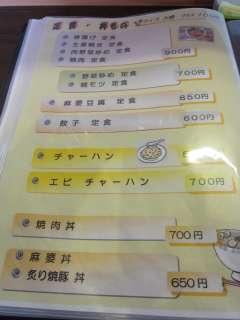 定食・丼もの
唐揚げ 定食
生姜焼き 定食
肉野菜炒め 定食
焼肉 定食
900円
野菜炒め 定食
700円
鶏モツ 定食
麻婆豆腐 定食 850円
餃子 定食 600円
チャーハン
エビ チャーハン 700円
焼肉丼 700円
麻婆丼
炙り焼豚丼 650円